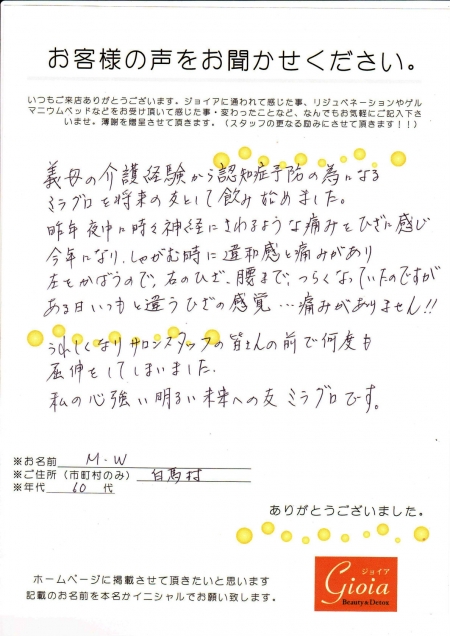 お客様の声をお聞かせください。
いつもご来店ありがとうございます。ジョイアに通われて感じた事、リジュベネーションやゲル
マニウムベッドなどをお受け頂いて感じた事・変わったことなど、なんでもお気軽にご記入下さ
いませ。薄謝を贈呈させて頂きます。（スタッフの更なる励みにさせて頂きます！！）
義母の介護経験から認知症予防の為になる
ミラグロを将来の友として飲み始めました。
昨年夜中に時々神経にさわるような痛みをひざに感じ
今年になり、しゃがむ時に違和感と痛みがあり
左をかばうので、右のひざ、腰まで、つらくなっていたのですが
ある日いつもと違うひざの感覚…痛みがありません!!
うれしくなりサロンスタッフの皆さんの前で何度も
屈伸をしてしまいました。
私の心強い明るい未来への友 ミラグロです。
※お名前 M・W
※ご住所（市町村のみ） 白馬村
※年代 60 代
ありがとうございました。
ホームページに掲載させて頂きたいと思います
記載のお名前を本名かイニシャルでお願い致します。
ジョイア
Gioia
Beauty&Detox